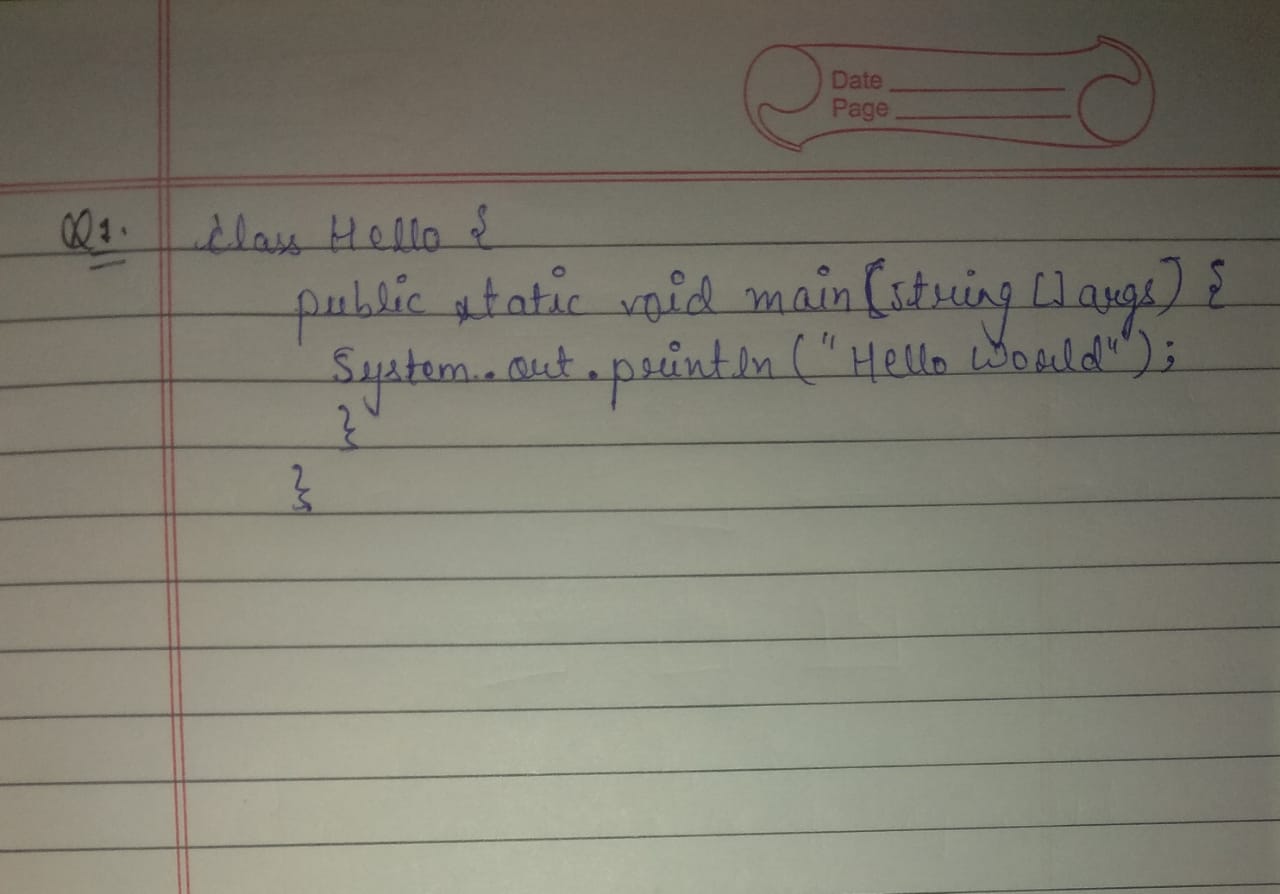 Date
Page
Q1. class Hello {
public static void main [string [] args) {
System.out.println ("Hello World");
}
}